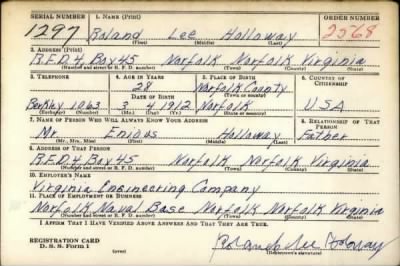 SERIAL NUMBER 1. NAME (Print) ORDER NUMBER
1297 Roland Lee Holloway 2568
(First) (Middle) (Last)
2. ADDRESS (Print)
R.F.D.4 Box 45 Norfolk Norfolk Virginia
(Number and street or R. F. D. number) (Town) (County) (State)
3. TELEPHONE 4. AGE IN YEARS 5. PLACE OF BIRTH 6. COUNTRY OF CITIZENSHIP
28 Norfolk County
DATE OF BIRTH (Town or county)
Berkley 1063 3 4 1912 Norfolk U S A
(Exchange) (Number) (Mo.) (Day) (Yr.) (State or country)
7. NAME OF PERSON WHO WILL ALWAYS KNOW YOUR ADDRESS 8. RELATIONSHIP OF THAT PERSON
Mr. Holloway Father
(Mr., Mrs., Miss) (First) (Middle) (Last)
9. ADDRESS OF THAT PERSON
R.F.D.4 Box 45 Norfolk Norfolk Virginia
(Number and street or R. F. D. number) (Town) (County) (State)
10. EMPLOYER'S NAME
Virginia Engineering Company
11. PLACE OF EMPLOYMENT OR BUSINESS
Norfolk Naval Base Norfolk Norfolk Virginia
(Number and street or R. F. D. number) (Town) (County) (State)
I AFFIRM THAT I HAVE VERIFIED ABOVE ANSWERS AND THAT THEY ARE TRUE.
REGISTRATION CARD
D. S. S. Form 1 (over) Roland Lee Holloway
(Registrant's signature)